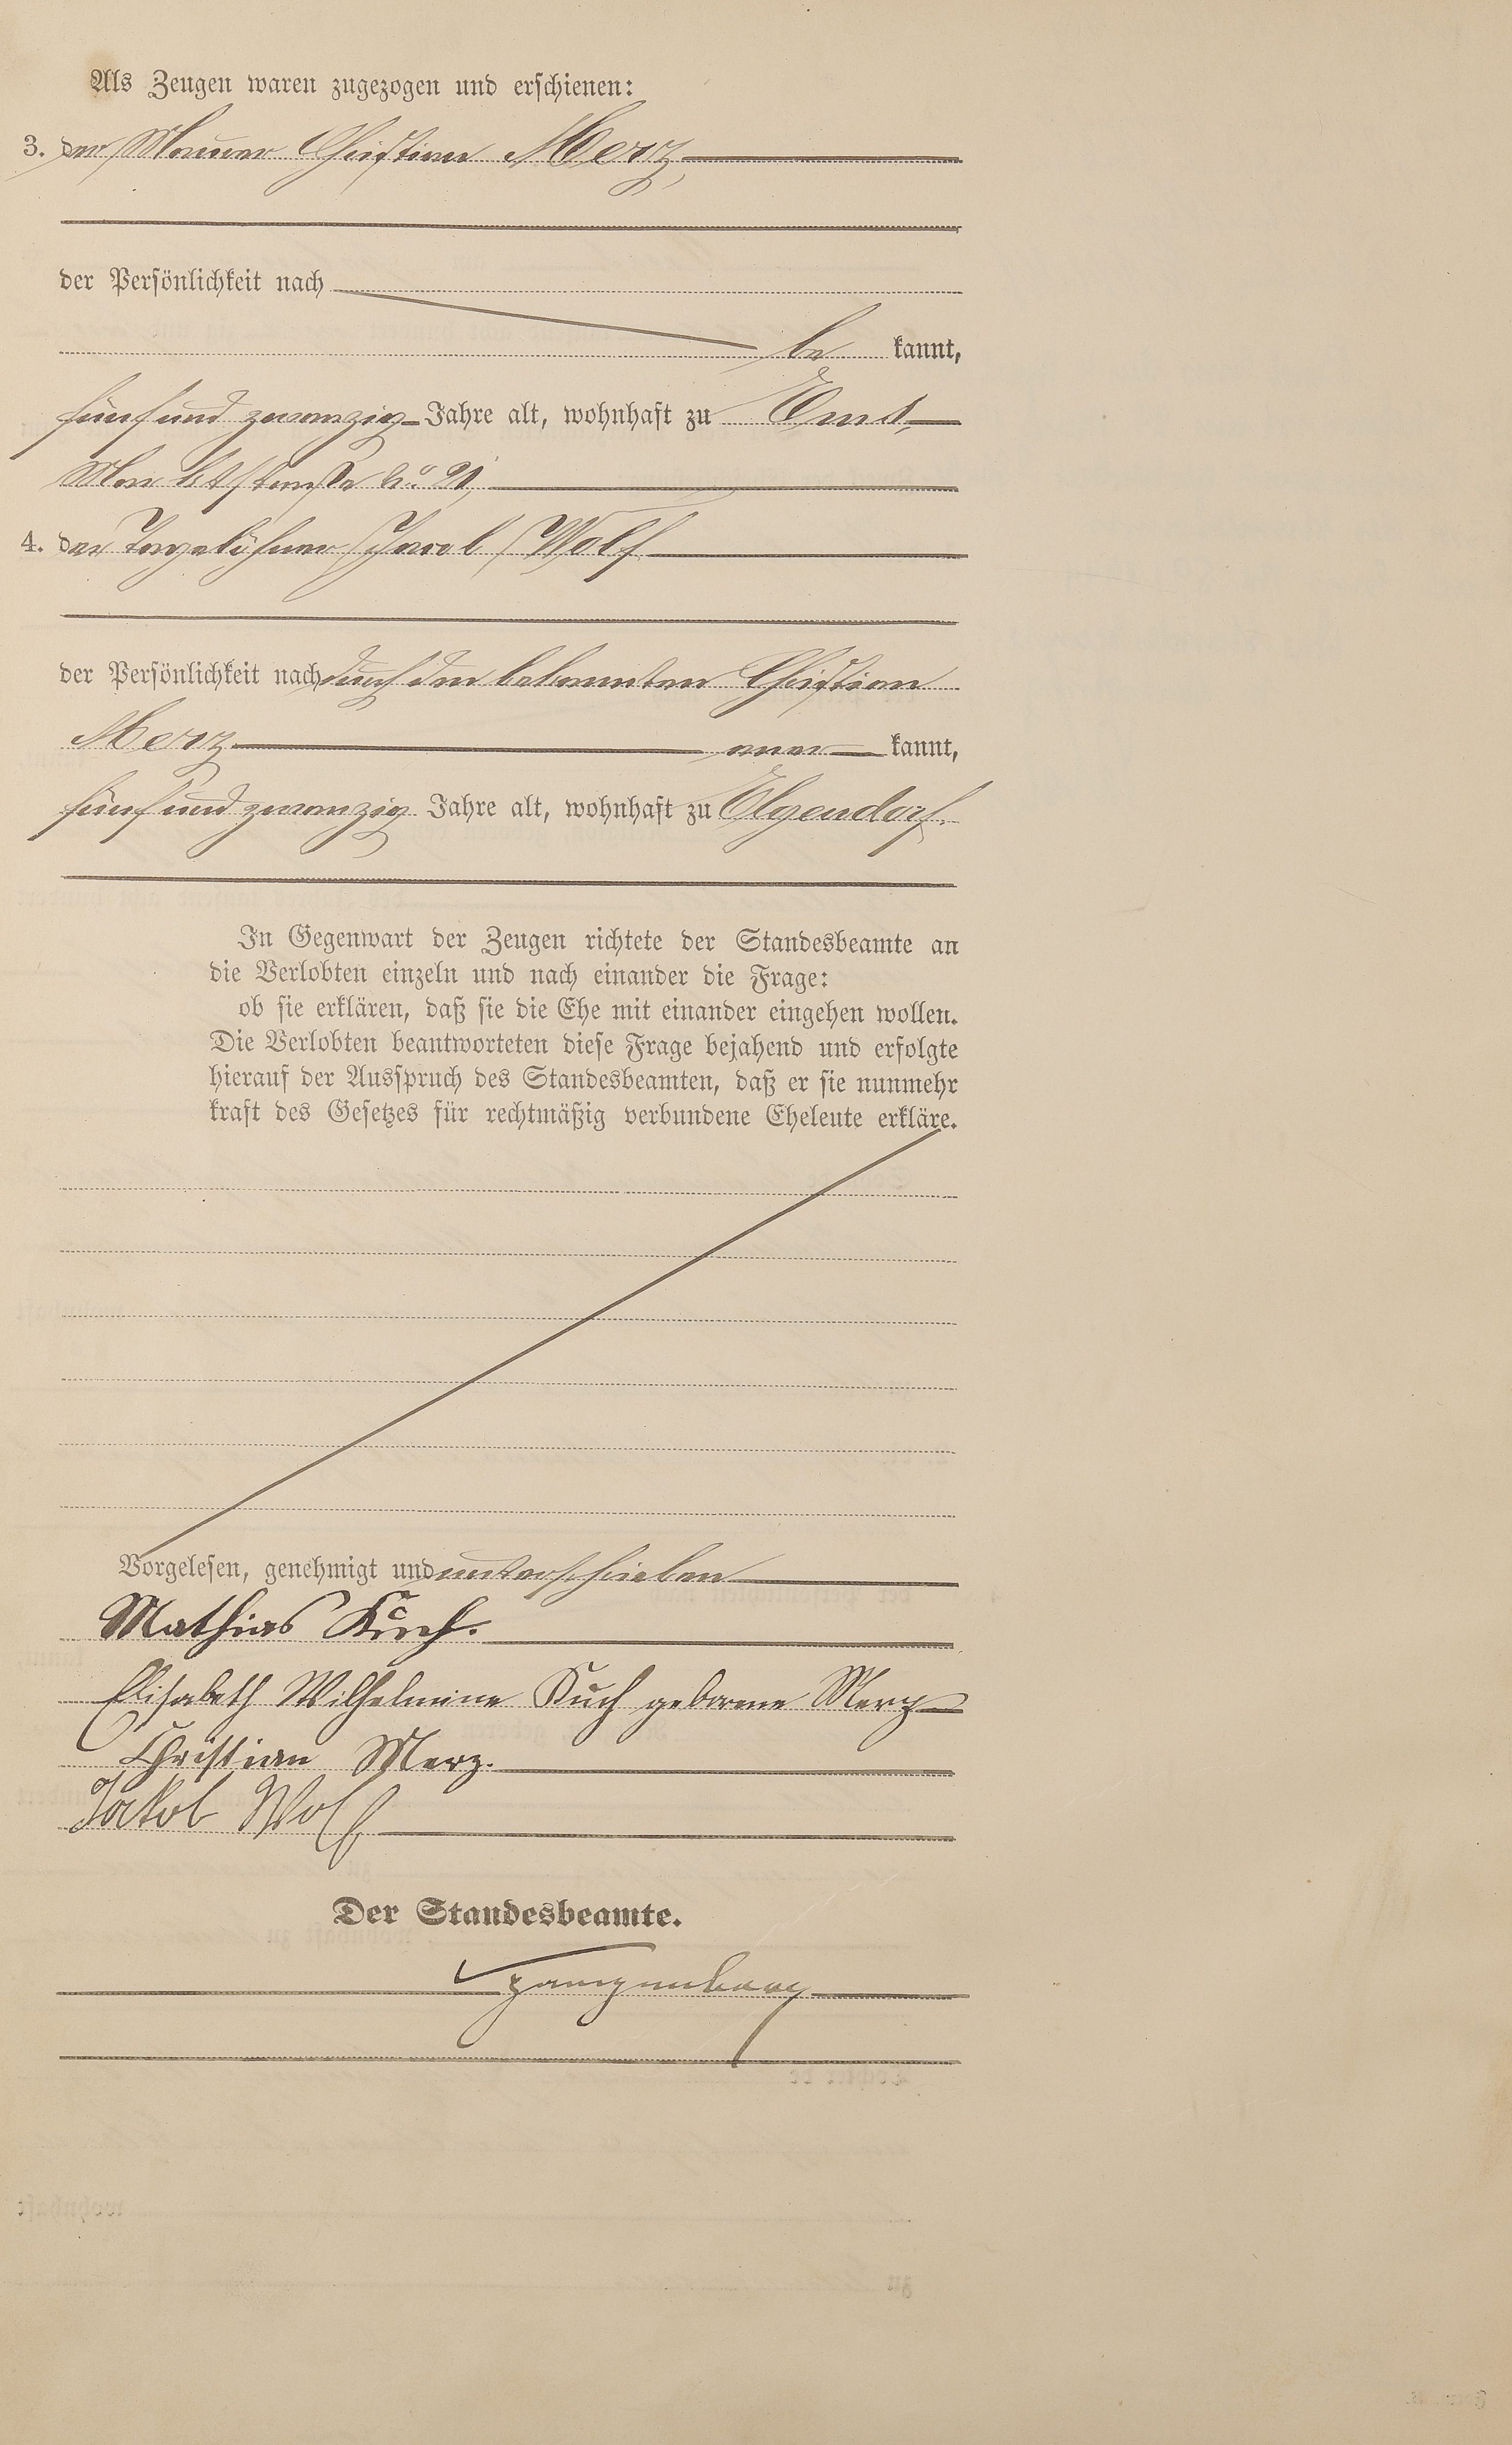 Als Zeugen waren zugezogen und erschienen:
3. der Maurer Christian Merz,
der Persönlichkeit nach
be kannt,
fünf und zwanzig Jahre alt, wohnhaft zu Ems,
Marktstraße No. 21,
4. der Tagelöhner Jacob Wolf
der Persönlichkeit nach durch den bekannten Christian
Merz aner kannt,
fünf und zwanzig Jahre alt, wohnhaft zu Elgendorf.
In Gegenwart der Zeugen richtete der Standesbeamte an
die Verlobten einzeln und nach einander die Frage:
ob sie erklären, daß sie die Ehe mit einander eingehen wollen.
Die Verlobten beantworteten diese Frage bejahend und erfolgte
hierauf der Ausspruch des Standesbeamten, daß er sie nunmehr
kraft des Gesetzes für rechtmäßig verbundene Eheleute erkläre.
Vorgelesen, genehmigt und unterschrieben
Mathias Kuch.
Elisabeth Wilhelmine Kuch geborene Merz
Christian Merz.
Jakob Wolf
Der Standesbeamte.